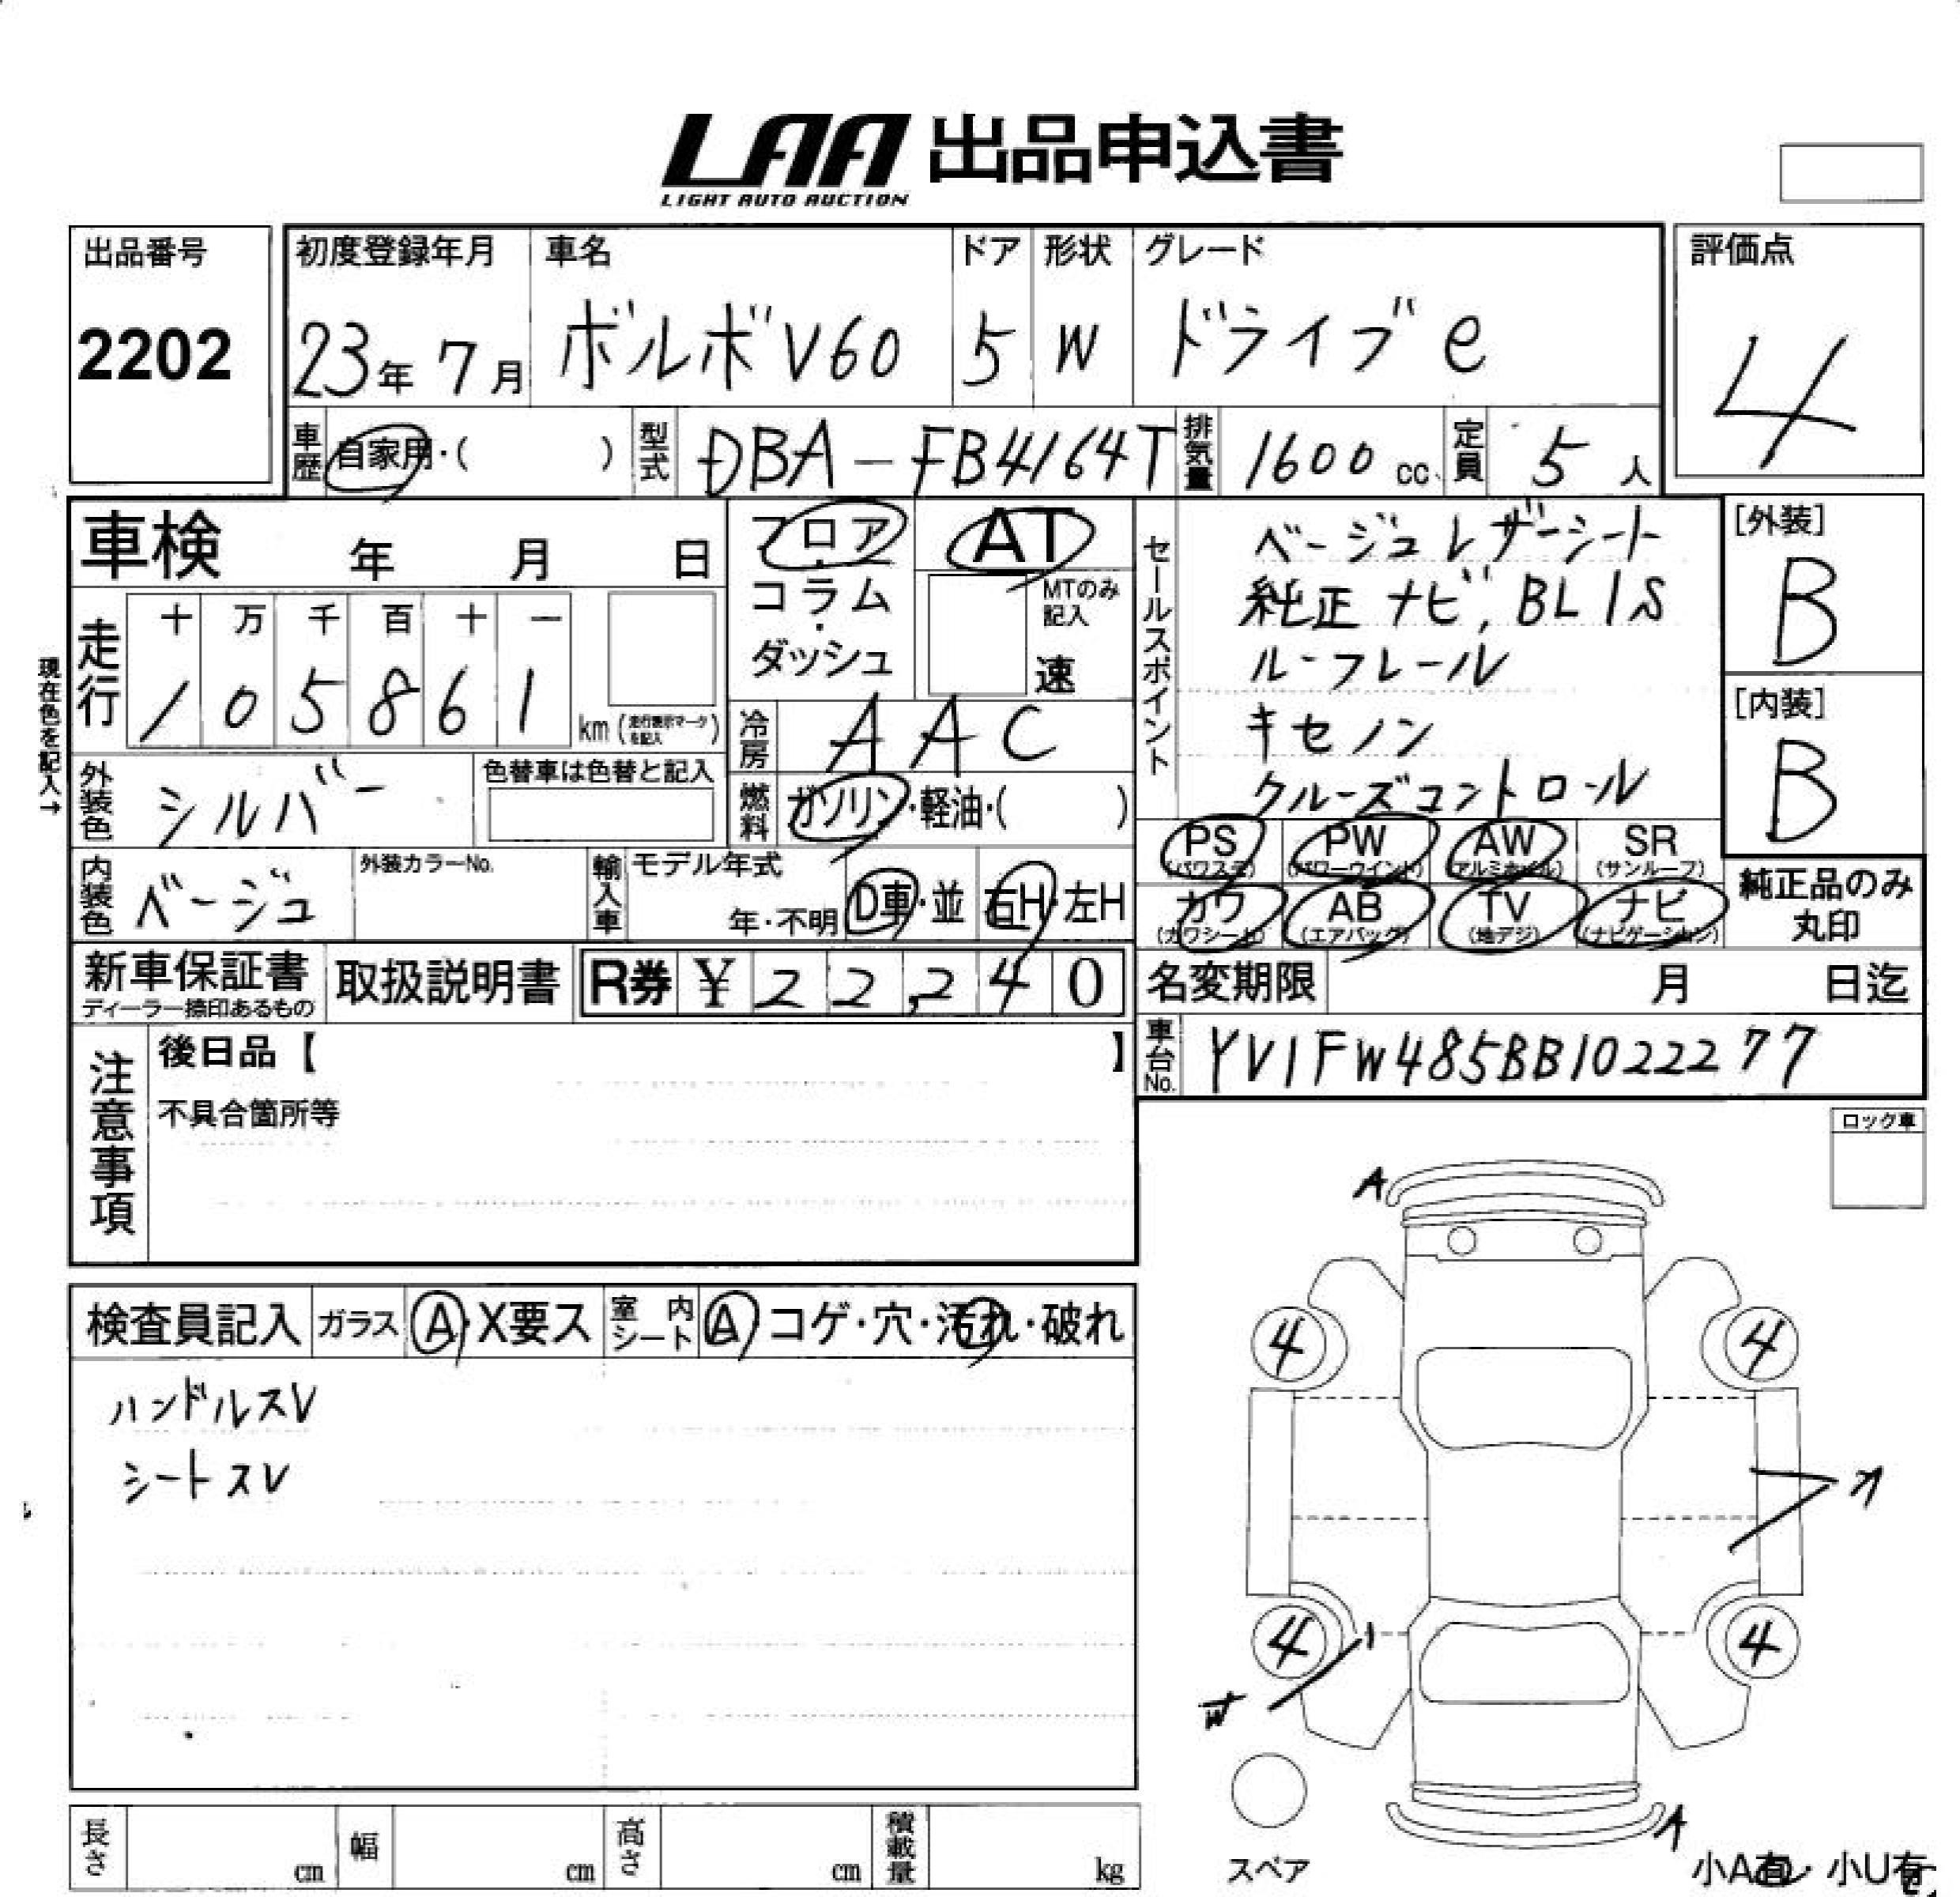 LAA 出品申込書
LIGHT AUTO AUCTION
出品番号
2202
初度登録年月
23年 7月
車名
ボルボV60
ドア
5
形状
W
グレード
ドライブe
評価点
4
車歴
自家用・( )
型式
DBA-FB4164T
排気量
1600 cc
定員
5 人
車検 年 月 日
現在色を記入→
走行
十 万 千 百 十 一
1 0 5 8 6 1
km (走行表示マークを記入)
フロア・コラム・ダッシュ
AT
MTのみ記入
速
冷房
AAC
燃料
ガソリン・軽油・( )
セールスポイント
ベージュレザーシート
純正ナビ,BLIS
ルーフレール
キセノン
クルーズコントロール
[外装]
B
[内装]
B
外装色
シルバー
色替車は色替と記入
内装色
ベージュ
外装カラーNo.
輸入車
モデル年式
年・不明
D車・並
右H・左H
PS
(パワステ)
PW
(パワーウインド)
AW
(アルミホイル)
SR
(サンルーフ)
カワ
(カワシート)
AB
(エアバック)
TV
(地デジ)
ナビ
(ナビゲーション)
純正品のみ
丸印
新車保証書
ディーラー捺印あるもの
取扱説明書
R券 ¥ 22,240
名変期限 月 日迄
車台No.
YV1FW485BB1022277
注意事項
後日品【 】
不具合箇所等
ロック車
検査員記入
ガラス
A・X要ス
室内シート
A コゲ・穴・汚れ・破れ
ハンドルスレ
シートスレ
A
4
4
4
4
A
スペア
小A有・小U有
長さ cm
幅 cm
高さ cm
積載量 kg